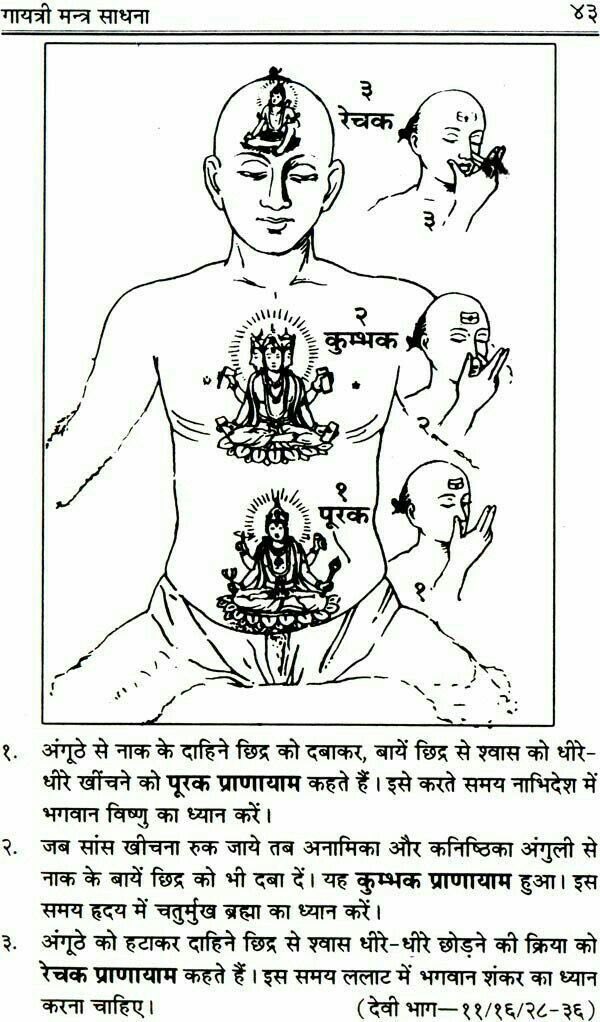 गायत्री मन्त्र साधना ४३
३
रेचक
३
२
कुम्भक
२
१
पूरक
१
१. अंगूठे से नाक के दाहिने छिद्र को दबाकर, बायें छिद्र से श्वास को धीरे-
धीरे खींचने को पूरक प्राणायाम कहते हैं। इसे करते समय नाभिदेश में
भगवान विष्णु का ध्यान करें।
२. जब सांस खीचना रुक जाये तब अनामिका और कनिष्ठिका अंगुली से
नाक के बायें छिद्र को भी दबा दें। यह कुम्भक प्राणायाम हुआ। इस
समय हृदय में चतुर्मुख ब्रह्मा का ध्यान करें।
३. अंगूठे को हटाकर दाहिने छिद्र से श्वास धीरे-धीरे छोड़ने की क्रिया को
रेचक प्राणायाम कहते हैं। इस समय ललाट में भगवान शंकर का ध्यान
करना चाहिए। (देवी भाग—११/१६/२८-३६)